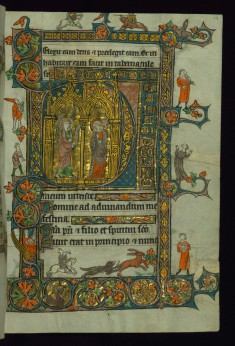 Elegit eam deus et preelegit eam Et in
habitare eam facit in tabernaculo
D
meum intende
Domine ad adiuuandum me
festina
Gloria patri et filio et spiritui sco
Sicut erat in principio et nunc